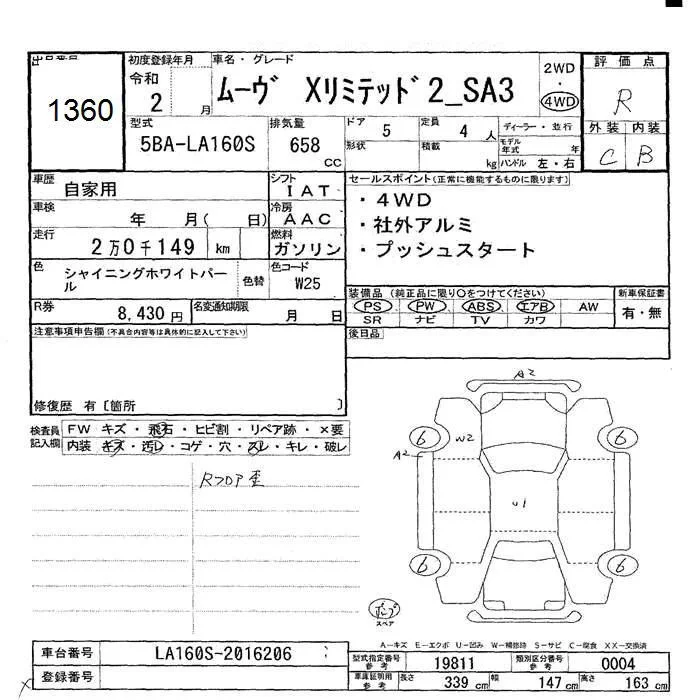 出品番号
1360
初度登録年月
令和
2 月
車名・グレード
ムーヴ Xリミテッドﾞ2_SA3
2WD
・
4WD
評価点
R
外装 内装
C B
型式
5BA-LA160S
排気量
658
cc
ドア
5
定員
4 人
形状
積載
kg
ディーラー・並行
モデル年式 年
ハンドル 左・右
車歴
自家用
シフト
IAT
車検
年 月( 日)
冷房
AAC
走行
2万0千149 km
燃料
ガソリン
色
シャイニングホワイトパール
色替
色コード
W25
R券
8,430円
名変通知期限
月 日
セールスポイント(正常に機能するものに限ります)
・4WD
・社外アルミ
・プッシュスタート
装備品(純正品に限り○をつけてください)
PS PW ABS エアB AW
SR ナビ TV カワ
新車保証書
有・無
後日品
注意事項申告欄(不具合内容等は具体的に記入して下さい)
修復歴 有〔箇所 〕
検査員記入欄
FW キズ・飛石・ヒビ割・リペア跡・×要
内装 キズ・汚レ・コゲ・穴・スレ・キレ・破レ
Rフロア歪
A2
6 W2 6
A2
U1
6 6
ポンプ
スペア
A-キズ E-エクボ U-凹み W-補修跡 S-サビ C-腐食 XX-交換済
車台番号
LA160S-2016206
登録番号
型式指定番号参考
19811
類別区分番号参考
0004
車庫証明用参考
長さ 339 cm 幅 147 cm 高さ 163 cm